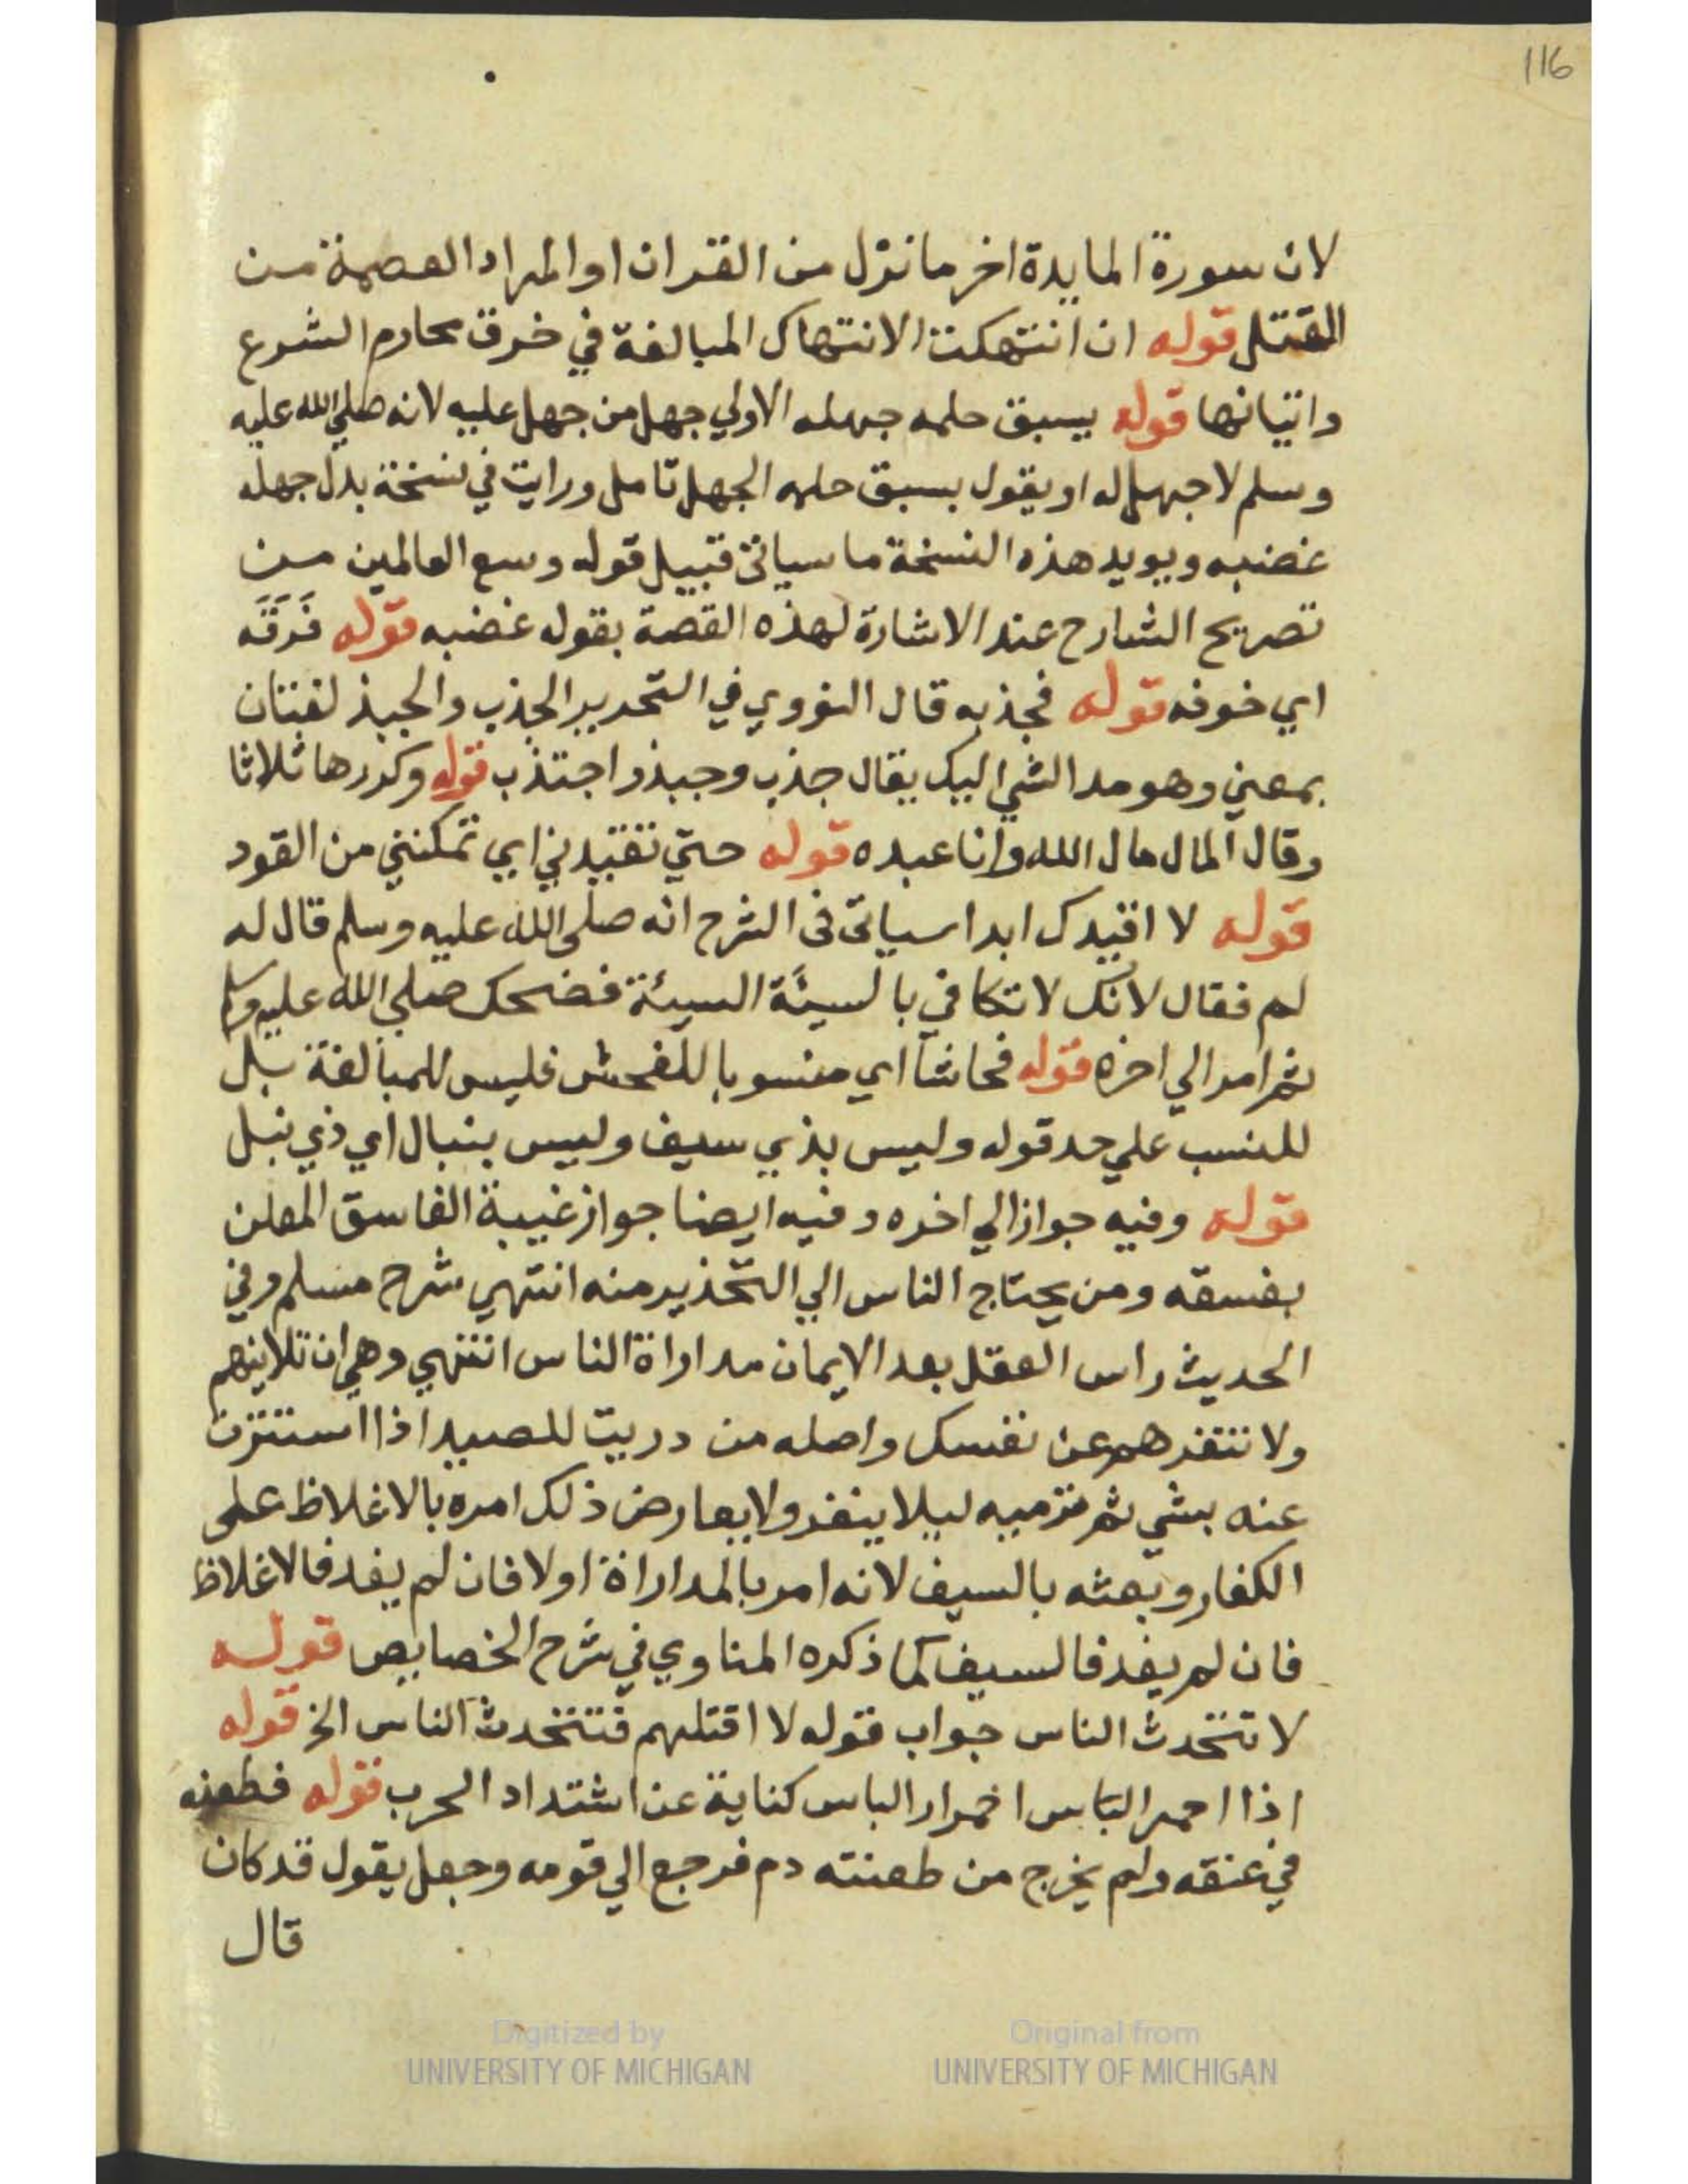 116
لان سورة المايدة اخر ما نزل من القران او المراد العصمة من
القتل قوله ان انتهكت الانتهاك المبالغة في خرق محارم الشرع
واتيانها قوله يسبق حلمه جهله الاولي جهل من جهل عليه لانه صلي الله عليه
وسلم لا جهل له او يقول يسبق حلمه الجهل تامل ورايت في نسخة بدل جهله
غضبه ويويد هذه النسخة ما سياتي قبيل قوله وسع العالمين من
تصريح الشارح عند الاشارة لهذه القصة بقوله غضبه قوله فَرَقَه
اي خوفه قوله فجذبه قال النووي في التحرير الجذب والجبذ لغتان
بمعني وهو مد الشي اليك يقال جذب وجبذ واجتذب قوله وكررها ثلاثا
وقال المال مال الله وانا عبده قوله حتي تقيدني اي تمكنني من القود
قوله لا اقيدك ابدا سياتي في الشرح انه صلى الله عليه وسلم قال له
لم فقال لانك لا تكافي بالسيئة السيئة فضحك صلي الله عليه وسلم
ثم امر الي اخره قوله فحاشا اي منسوبا للفحش فليس للمبالغة بل
للنسب علي حد قوله وليس بذي سيف وليس بنبال اي ذي نبل
قوله وفيه جواز الي اخره وفيه ايضا جواز غيبة الفاسق المعلن
بفسقه ومن يحتاج الناس الي التحذير منه انتهي شرح مسلم وفي
الحديث راس العقل بعد الايمان مداراة الناس انتهي وهي ان تلاينهم
ولا تنفرهم عن نفسك واصله من دريت للصيد اذا استترت
عنه بشي ثم ترميه ليلا ينفر ولا يعارض ذلك امره بالاغلاظ على
الكفار وبعثه بالسيف لانه امر بالمداراة اولا فان لم يفد فالاغلاظ
فان لم يفد فالسيف كما ذكره المناوي في شرح الخصايص قوله
لا تتحدث الناس جواب قوله لا اقتلهم فتتحدث الناس الخ قوله
اذا احمر الباس احمرار الباس كناية عن اشتداد الحرب قوله فطعنه
في عنقه ولم يخرج من طعنته دم فرجع الي قومه وجعل يقول قد كان
قال
Digitized by
UNIVERSITY OF MICHIGAN
Original from
UNIVERSITY OF MICHIGAN